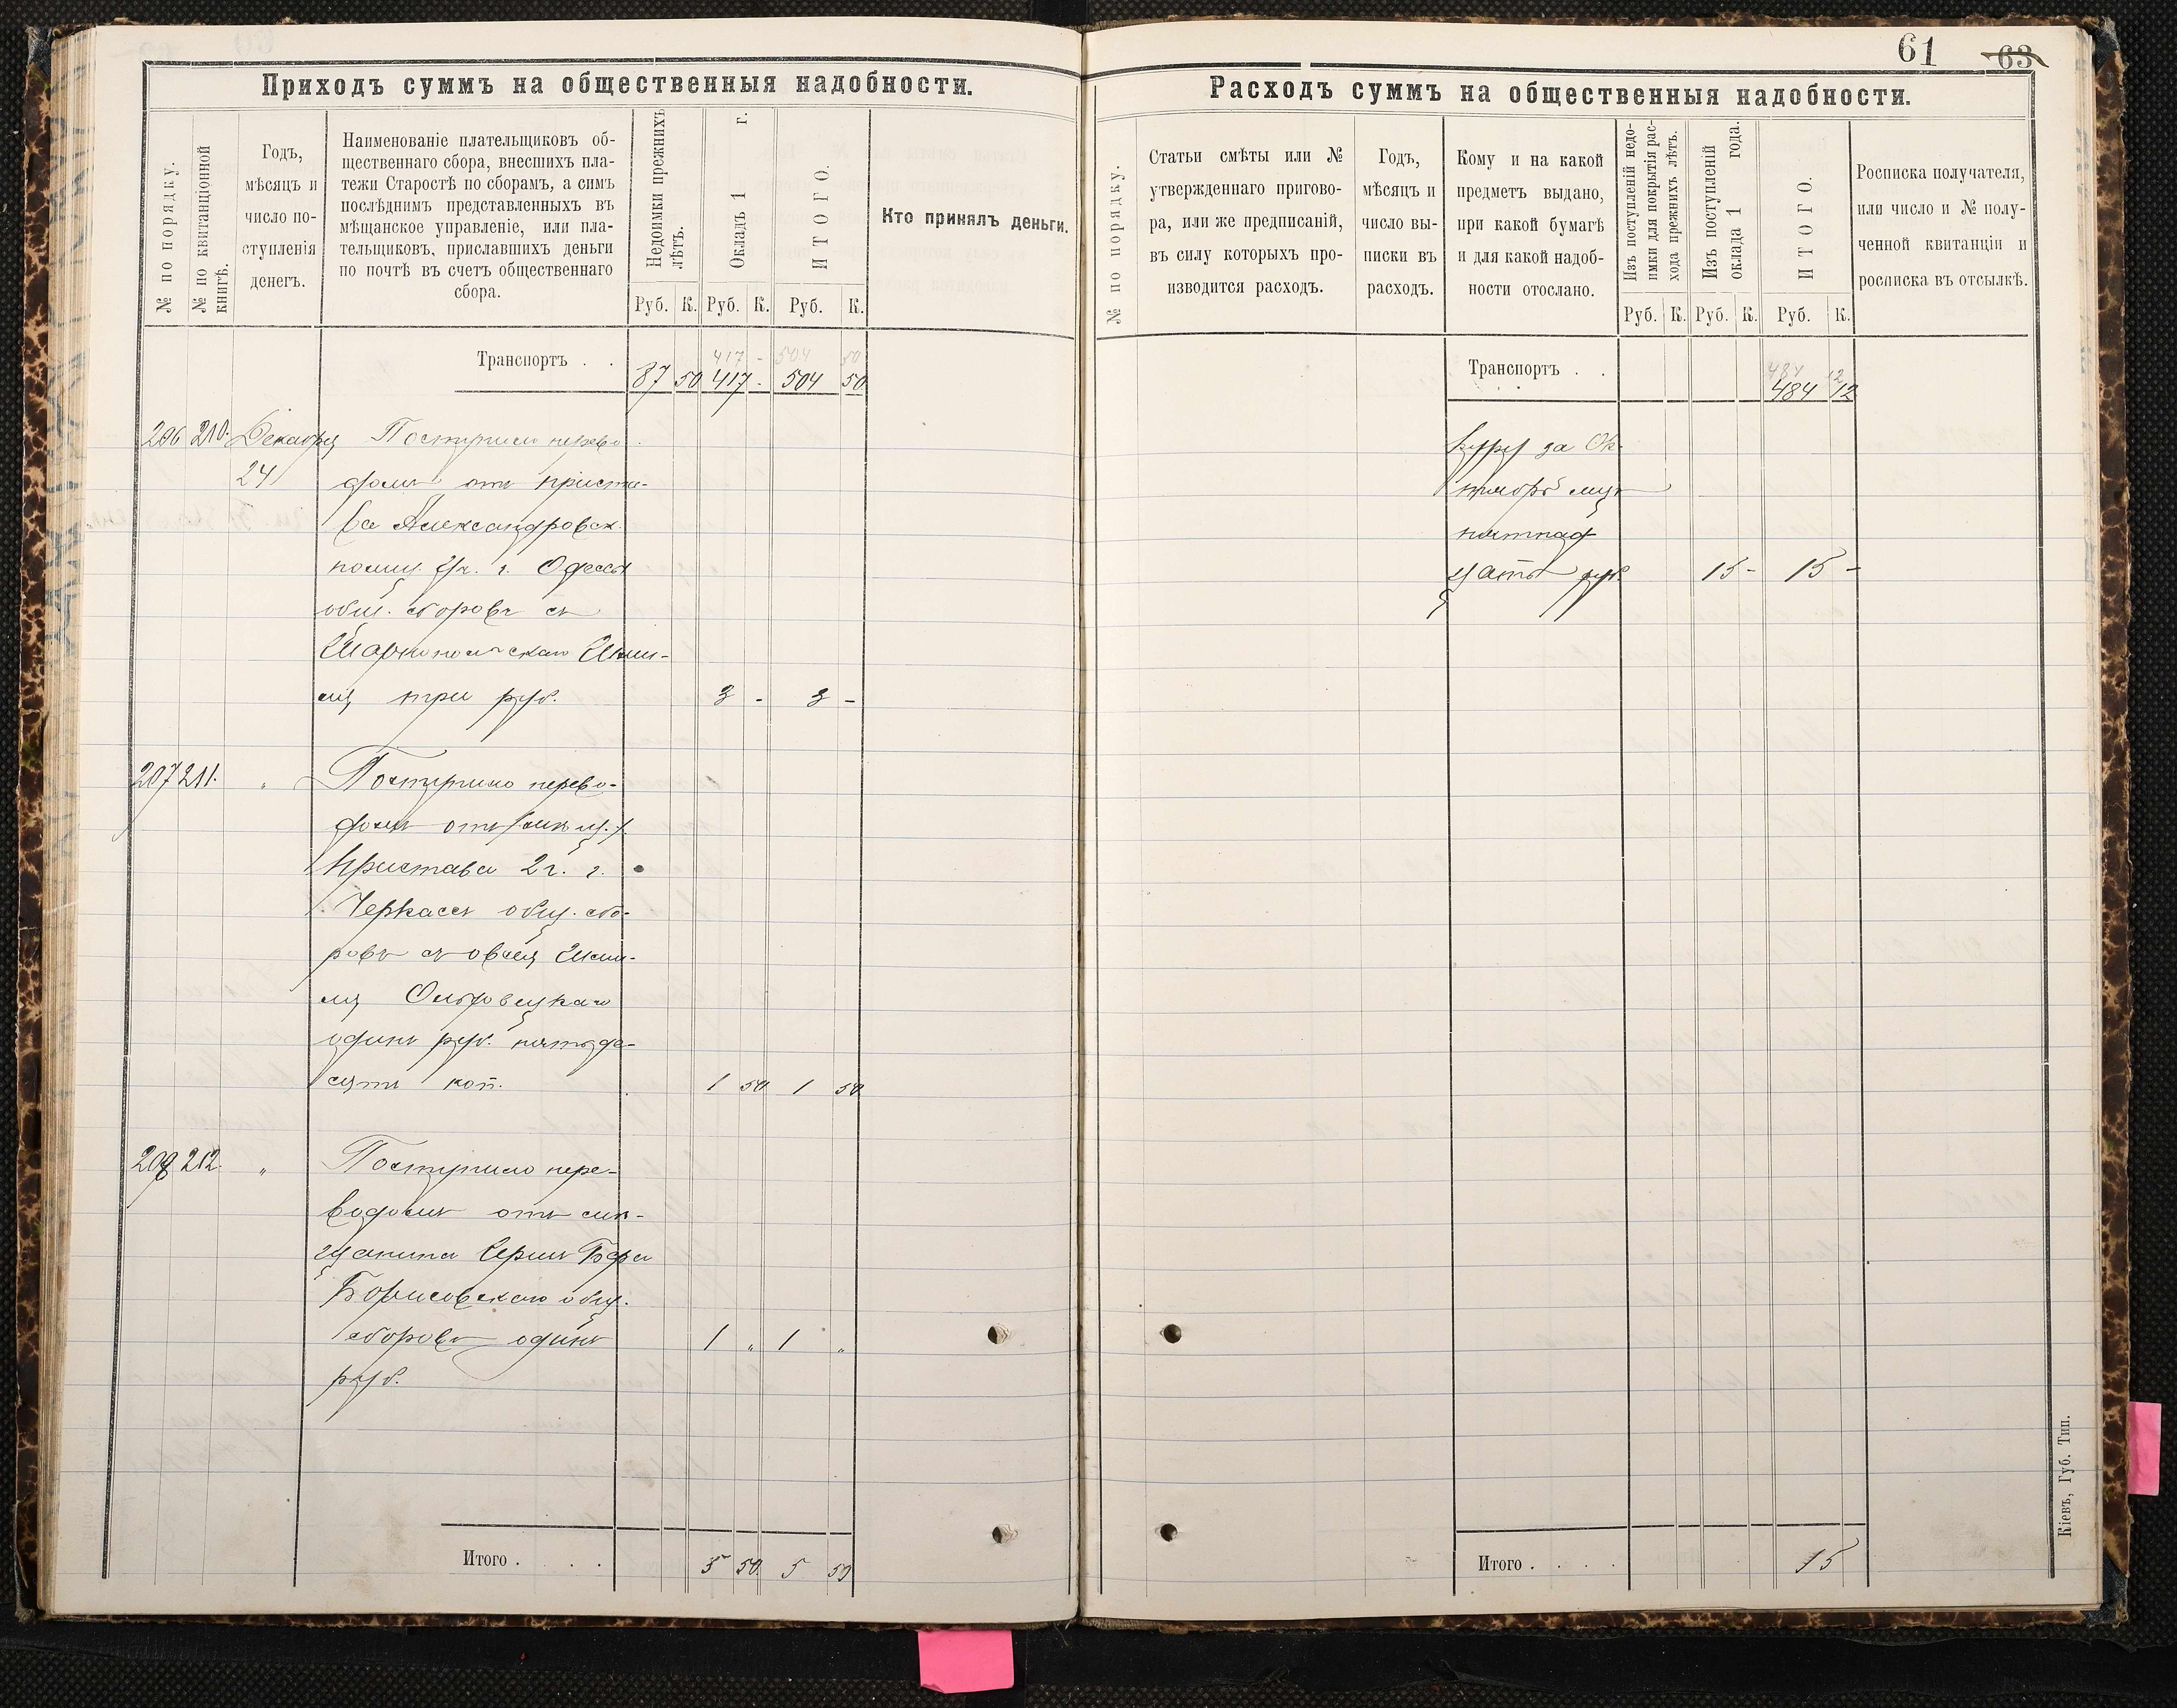 61 63
Приходъ суммъ на общественныя надобности.
№ по порядку.
№ по квитанціонной
книгѣ.
Годъ,
мѣсяцъ и
число по-
ступленія
денегъ.
Наименованіе плательщиковъ об-
щественнаго сбора, внесшихъ пла-
тежи Старостѣ по сборамъ, а симъ
послѣднимъ представленныхъ въ
мѣщанское управленіе, или пла-
тельщиковъ, приславшихъ деньги
по почтѣ въ счетъ общественнаго
сбора.
Недоимки прежнихъ
лѣтъ.
Окладъ 1 г.
ИТОГО.
Кто принялъ деньги.
Руб. К. Руб. К. Руб. К.
417 - 504 50
Транспортъ . . 87 50 417 - 504 50
206 210. Декабря Поступило перево-
24 домъ отъ приста-
ва Александровск.
полиц. уч. г. Одессы
общ. сборовъ съ
три руб. 3 - 3 -
207 211. " Поступило перево-
домъ отъ
Пристава 2 ч. г.
Черкассъ общ. сбо-
ровъ съ
одинъ руб. пятьде-
сятъ коп. 1 50 1 50
208 212. " Поступило пере-
водомъ отъ мѣ-
щанина
Борисовскаго общ.
сборовъ одинъ 1 " 1 "
руб.
Итого . . . . 5 50. 5 50
Расходъ суммъ на общественныя надобности.
№ по порядку.
Статьи смѣты или №
утвержденнаго пригово-
ра, или же предписаній,
въ силу которыхъ про-
изводится расходъ.
Годъ,
мѣсяцъ и
число вы-
писки въ
расходъ.
Кому и на какой
предметъ выдано,
при какой бумагѣ
и для какой надоб-
ности отослано.
Изъ поступленій недо-
имки для покрытія рас-
хода прежнихъ лѣтъ.
Изъ поступленій
оклада 1 года.
ИТОГО.
Росписка получателя,
или число и № полу-
ченной квитанціи и
росписка въ отсылкѣ.
Руб. К. Руб. К. Руб. К.
484 12
Транспортъ . . 484 12
за Ок-
тябрь мцъ
пятнад
цать руб. 15 - 15 -
Итого . . . . 15
Кіевъ, Губ. Тип.